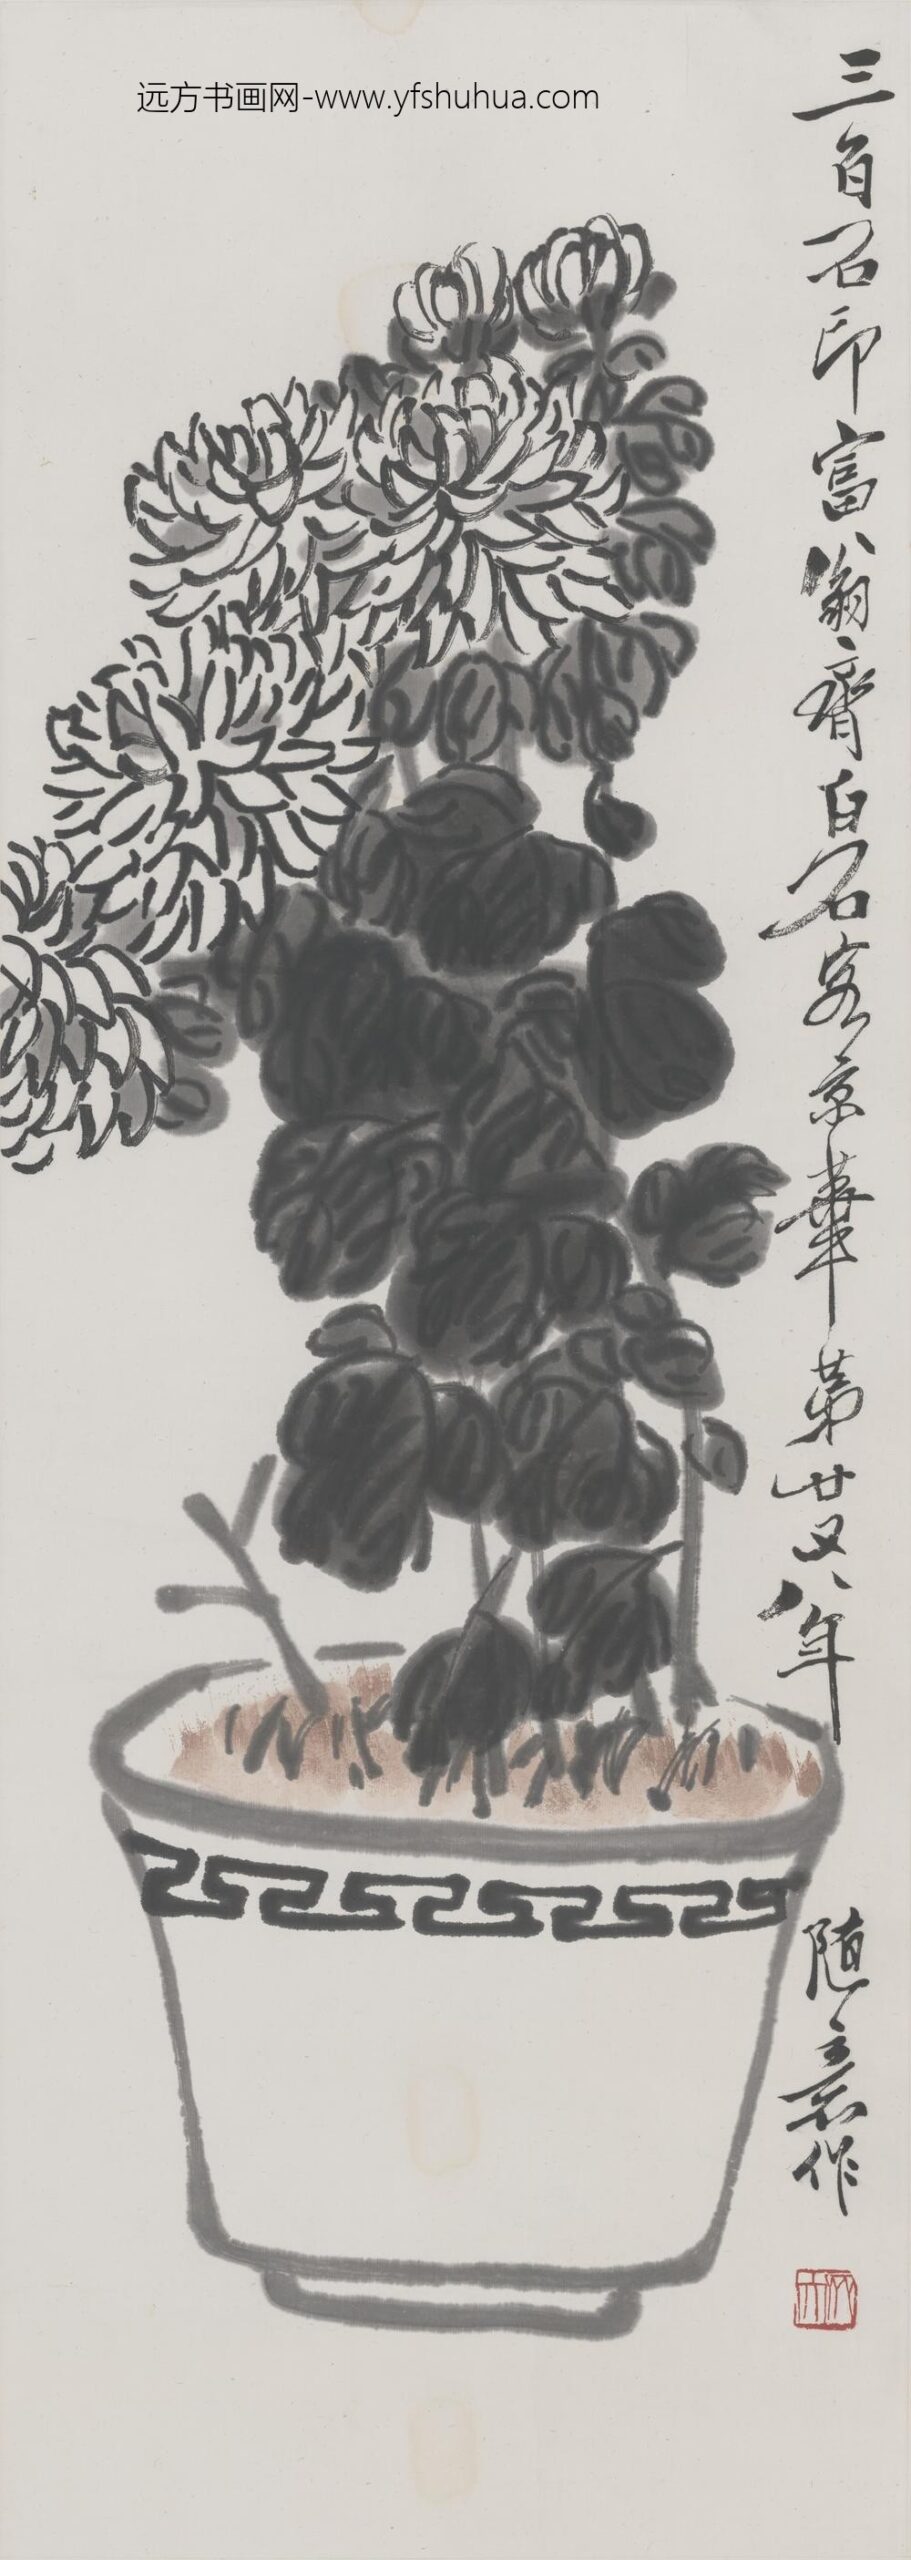 远方书画网-www.yfshuhua.com
三百石印富翁齊白石客京華第廿又八年
隨意作